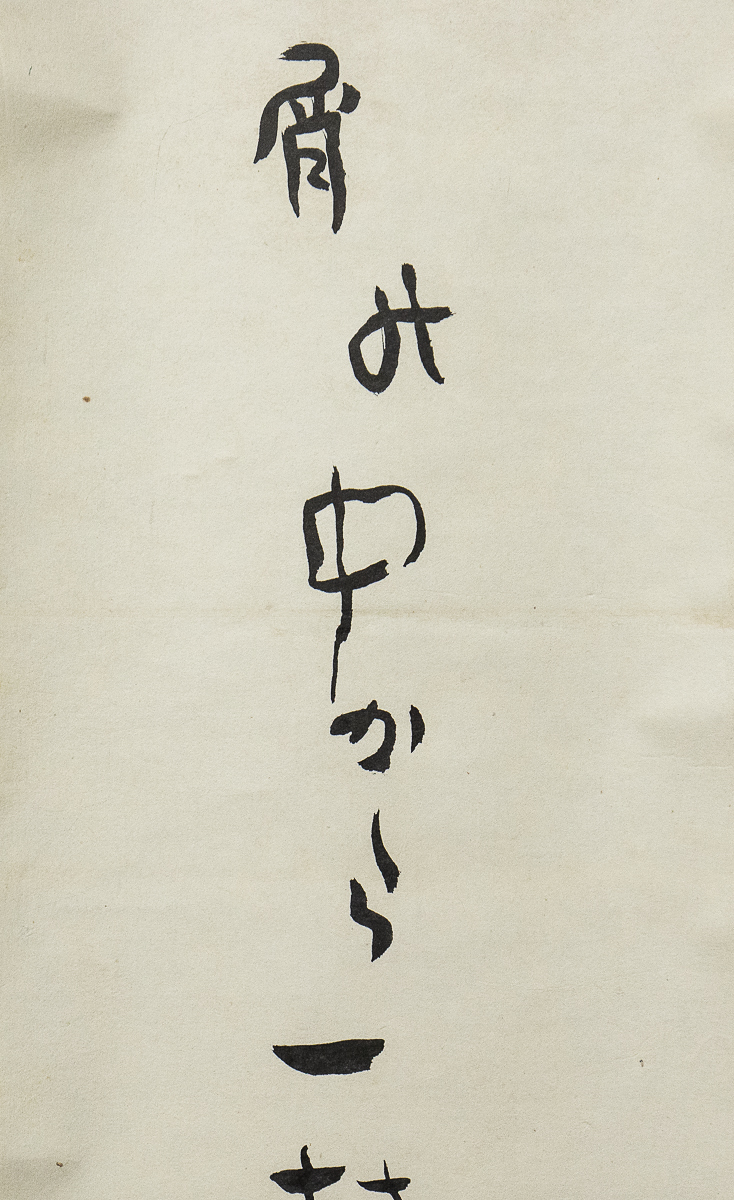 屑の中から一